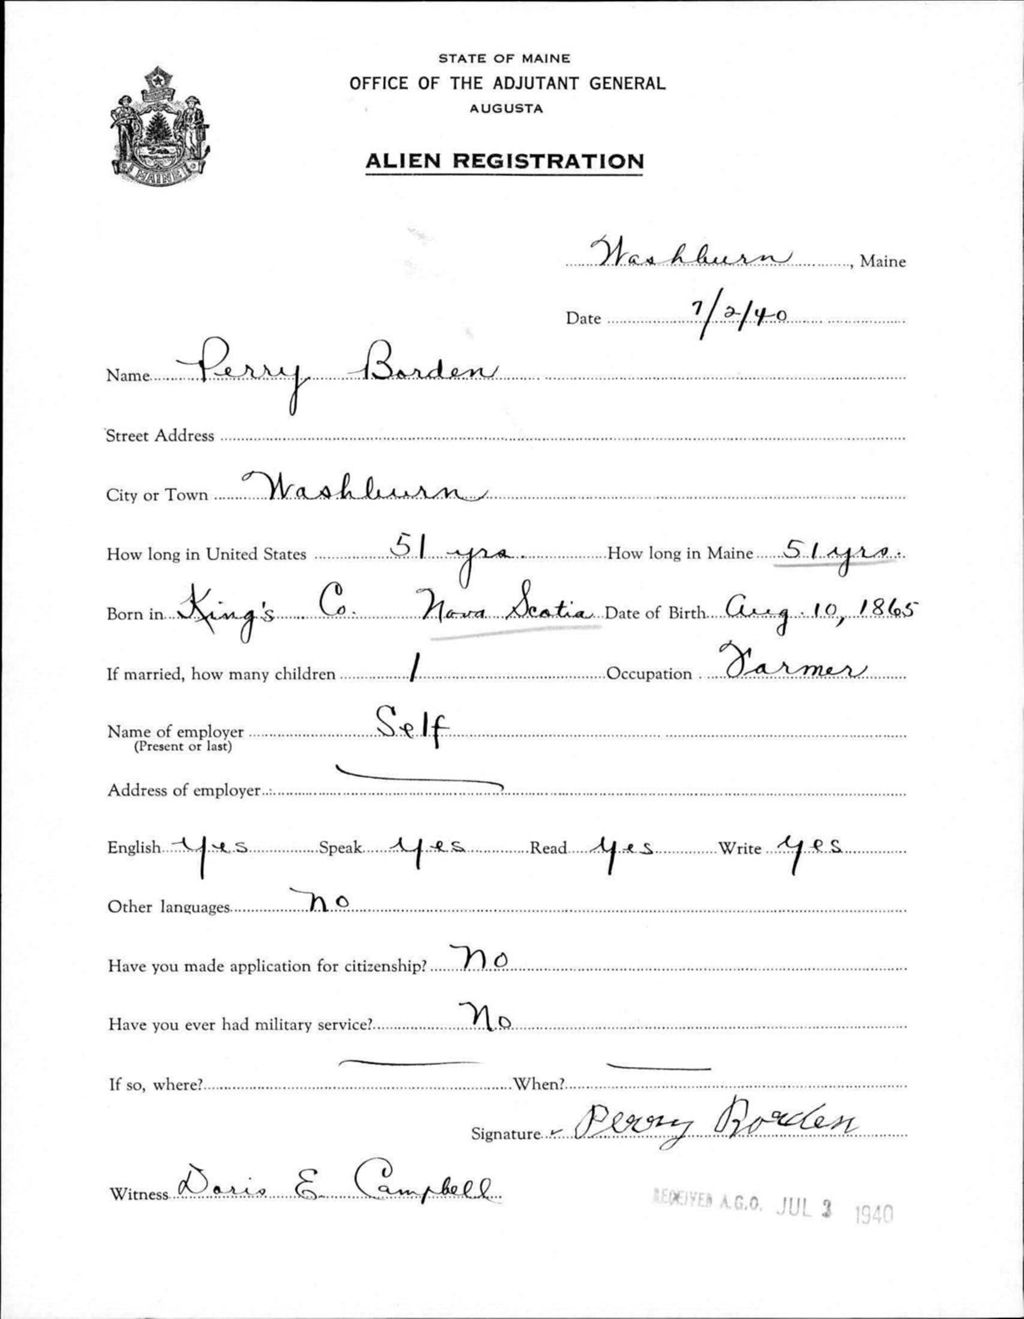 STATE OF MAINE
OFFICE OF THE ADJUTANT GENERAL
AUGUSTA
ALIEN REGISTRATION
MAINE
Washburn, Maine
Date 7/2/40
Name Perry Borden
Street Address
City or Town Washburn
How long in United States 51 yrs. How long in Maine 51 yrs.
Born in King's Co. Nova Scotia Date of Birth Aug. 10, 1865
If married, how many children 1 Occupation Farmer
Name of employer Self
(Present or last)
Address of employer
English yes Speak yes Read yes Write yes
Other languages no
Have you made application for citizenship? No
Have you ever had military service? No
If so, where? When?
Signature Perry Borden
Witness Doris E Campbell
RECEIVED A.G.O. JUL 3 1940